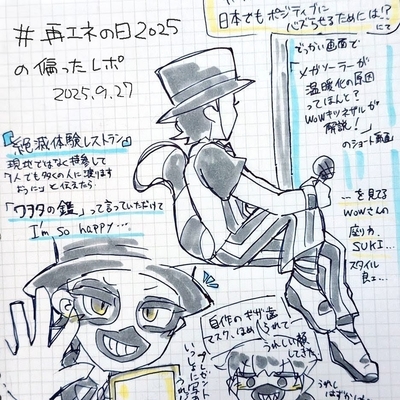 #再エネの日2025
の偏ったレポ
2025.9.27
日本でもポジティブに
バズらせるためには!?
にて
でっかい画面で
「メガソーラーが
温暖化の原因
ってほんと?
WoWキツネザルが
解説!」
のショート動画
…を見てる
WoWさんの
座り方
SUKI…
スタイル
良ェ…
『絶滅体験レストラン』
現地ではなく持参して
1人でも多くの人に渡ります
と伝えたら
「ワヲタの鑑」って言っていただけて
I'm so happy…
自作の
マスク、ほめられて
うれしい